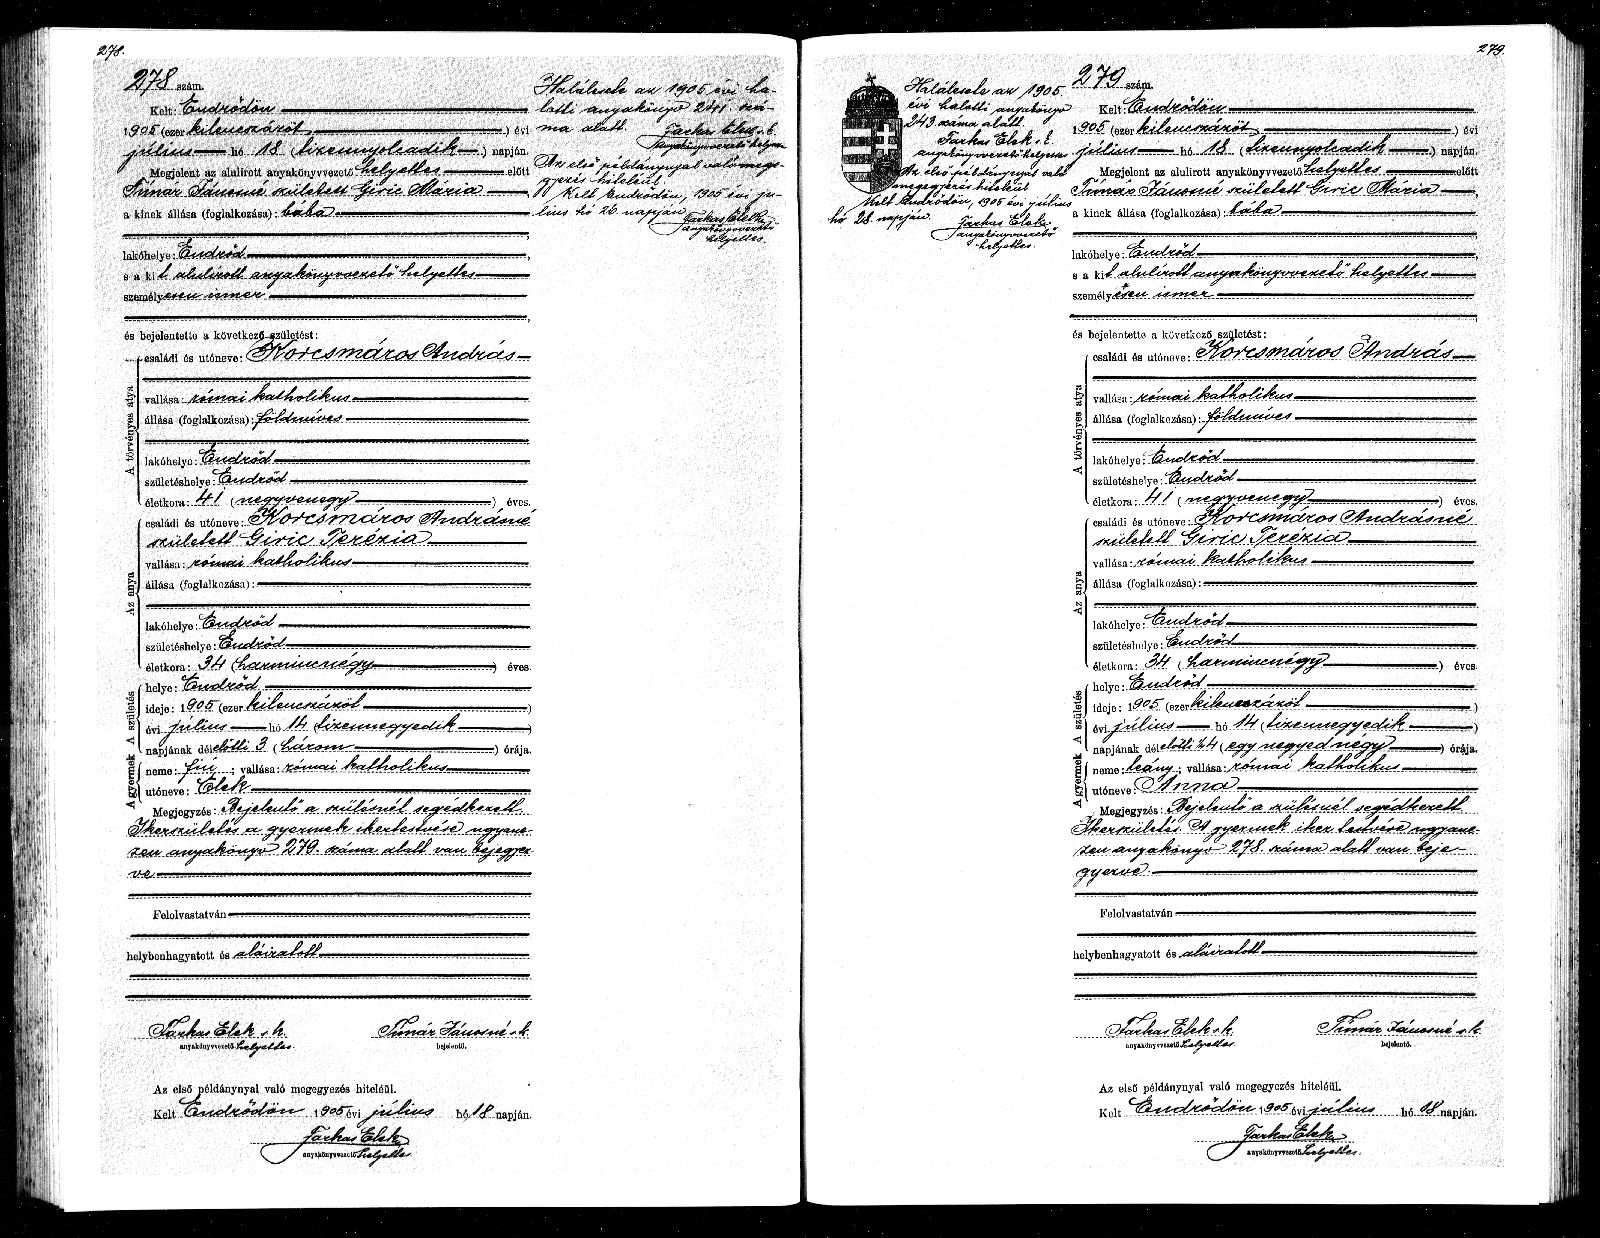 278.
278 szám.
Kelt: Endrődön
1905 (ezer kilenczázöt ) évi
július hó 18 (tizennyolcadik ) napján.
Megjelent az alulirott anyakönyvvezető helyettes előtt
Timár Jánosné született Giric Mária
a kinek állása (foglalkozása): bába
lakóhelye: Endrőd
s a kit alulírott anyakönyvvezető helyettes
személyesen ismer
és bejelentette a következő születést:
A törvényes atya
családi és utóneve: Korcsmáros András
vallása: római katholikus
állása (foglalkozása): földmíves
lakóhelye: Endrőd
születéshelye: Endrőd
életkora: 41 (negyvenegy ) éves.
Az anya
családi és utóneve: Korcsmáros Andrásné
született Giric Terézia
vallása: római katholikus
állása (foglalkozása):
lakóhelye: Endrőd
születéshelye: Endrőd
életkora: 34 (harmincnégy ) éves.
A gyermek A születés
helye: Endrőd
ideje: 1905 (ezer kilenczázöt )
évi július hó 14 (tizennegyedik )
napjának délelőtti 3 (három ) órája.
neme: fiú ; vallása: római katholikus
utóneve: Elek
Megjegyzés: Bejelentő a szülésnél segédkezett.
Ikerszületés a gyermek ikertestvére ugyane-
zen anyakönyv 279. száma alatt van bejegyez-
ve
Felolvastatván
helybenhagyatott és aláiratott
Farkas Elek s. k. Timár Jánosné s. k.
anyakönyvvezető helyettes. bejelentő.
Az első példánynyal való megegyezés hiteléül.
Kelt Endrődön 1905 évi július hó 18 napján.
Farkas Elek
anyakönyvvezető helyettes.
Halálesete az 1905 évi ha-
lotti anyakönyv 241. szá-
ma alatt.
Farkas Elek s. k.
anyakönyvvezető helyettes
Az első példánynyal való megegy-
gyezés hiteléül
Kelt Endrődön, 1905 évi jú-
lius hó 26. napján
Farkas Elek
anyakönyvvezető
helyettes.
279.
Halálesete az 1905
évi halotti anyakönyv
243 száma alatt.
Farkas Elek s. k.
anyakönyvvezető helyettes
Az első példánynyal való
megegyezés hiteléül
Kelt Endrődön, 1905 évi július
hó 28. napján.
Farkas Elek
anyakönyvvezető
helyettes.
279 szám.
Kelt: Endrődön
1905 (ezer kilenczázöt ) évi
július hó 18 (tizennyolcadik ) napján.
Megjelent az alulirott anyakönyvvezető helyettes előtt
Timár Jánosné született Giric Mária
a kinek állása (foglalkozása): bába
lakóhelye: Endrőd
s a kit alulírott anyakönyvvezető helyettes
személyesen ismer
és bejelentette a következő születést:
A törvényes atya
családi és utóneve: Korcsmáros András
vallása: római katholikus
állása (foglalkozása): földmíves
lakóhelye: Endrőd
születéshelye: Endrőd
életkora: 41 (negyvenegy ) éves.
Az anya
családi és utóneve: Korcsmáros Andrásné
született Giric Terézia
vallása: római katholikus
állása (foglalkozása):
lakóhelye: Endrőd
születéshelye: Endrőd
életkora: 34 (harmincnégy ) éves.
A gyermek A születés
helye: Endrőd
ideje: 1905 (ezer kilenczázöt )
évi július hó 14 (tizennegyedik )
napjának délelőtti ¼4 (egy negyed négy ) órája.
neme: leány ; vallása: római katholikus
utóneve: Anna
Megjegyzés: Bejelentő a szülésnél segédkezett
Ikerszületés. A gyermek iker testvére ugyane-
zen anyakönyv 278. száma alatt van beje-
gyezve.
Felolvastatván
helybenhagyatott és aláiratott
Farkas Elek s. k. Timár Jánosné s. k.
anyakönyvvezető helyettes. bejelentő.
Az első példánynyal való megegyezés hiteléül.
Kelt Endrődön 1905 évi július hó 18 napján.
Farkas Elek
anyakönyvvezető helyettes.